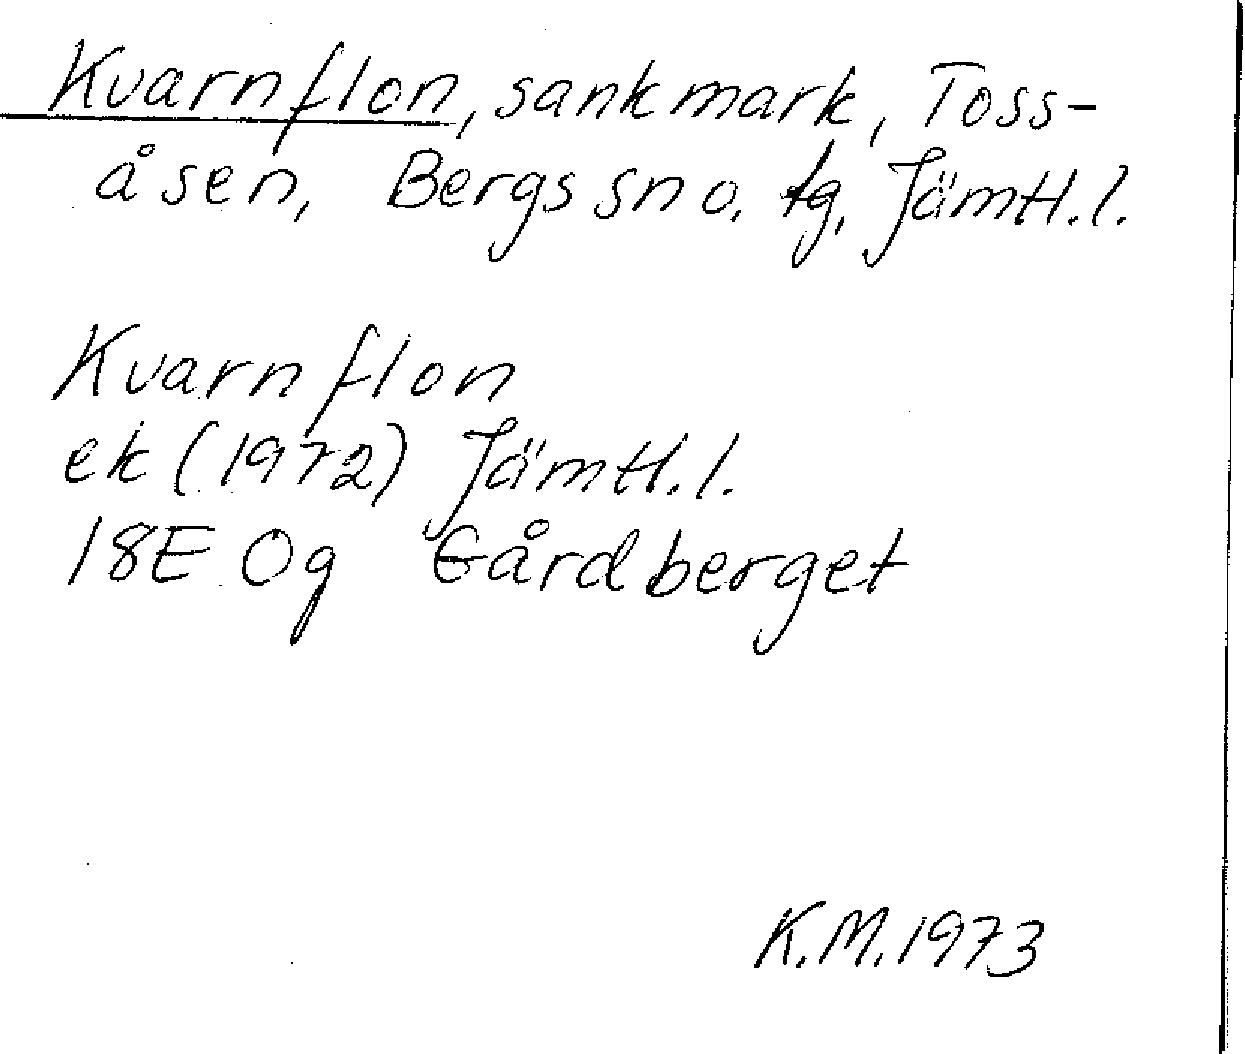 Kvarnflon, sankmark, Toss-
åsen, Bergs sn o. tg, Jämtl.l.
Kvarnflon
ek (1972) Jämtl.l.
18E 0g Gårdberget
K.M.1973